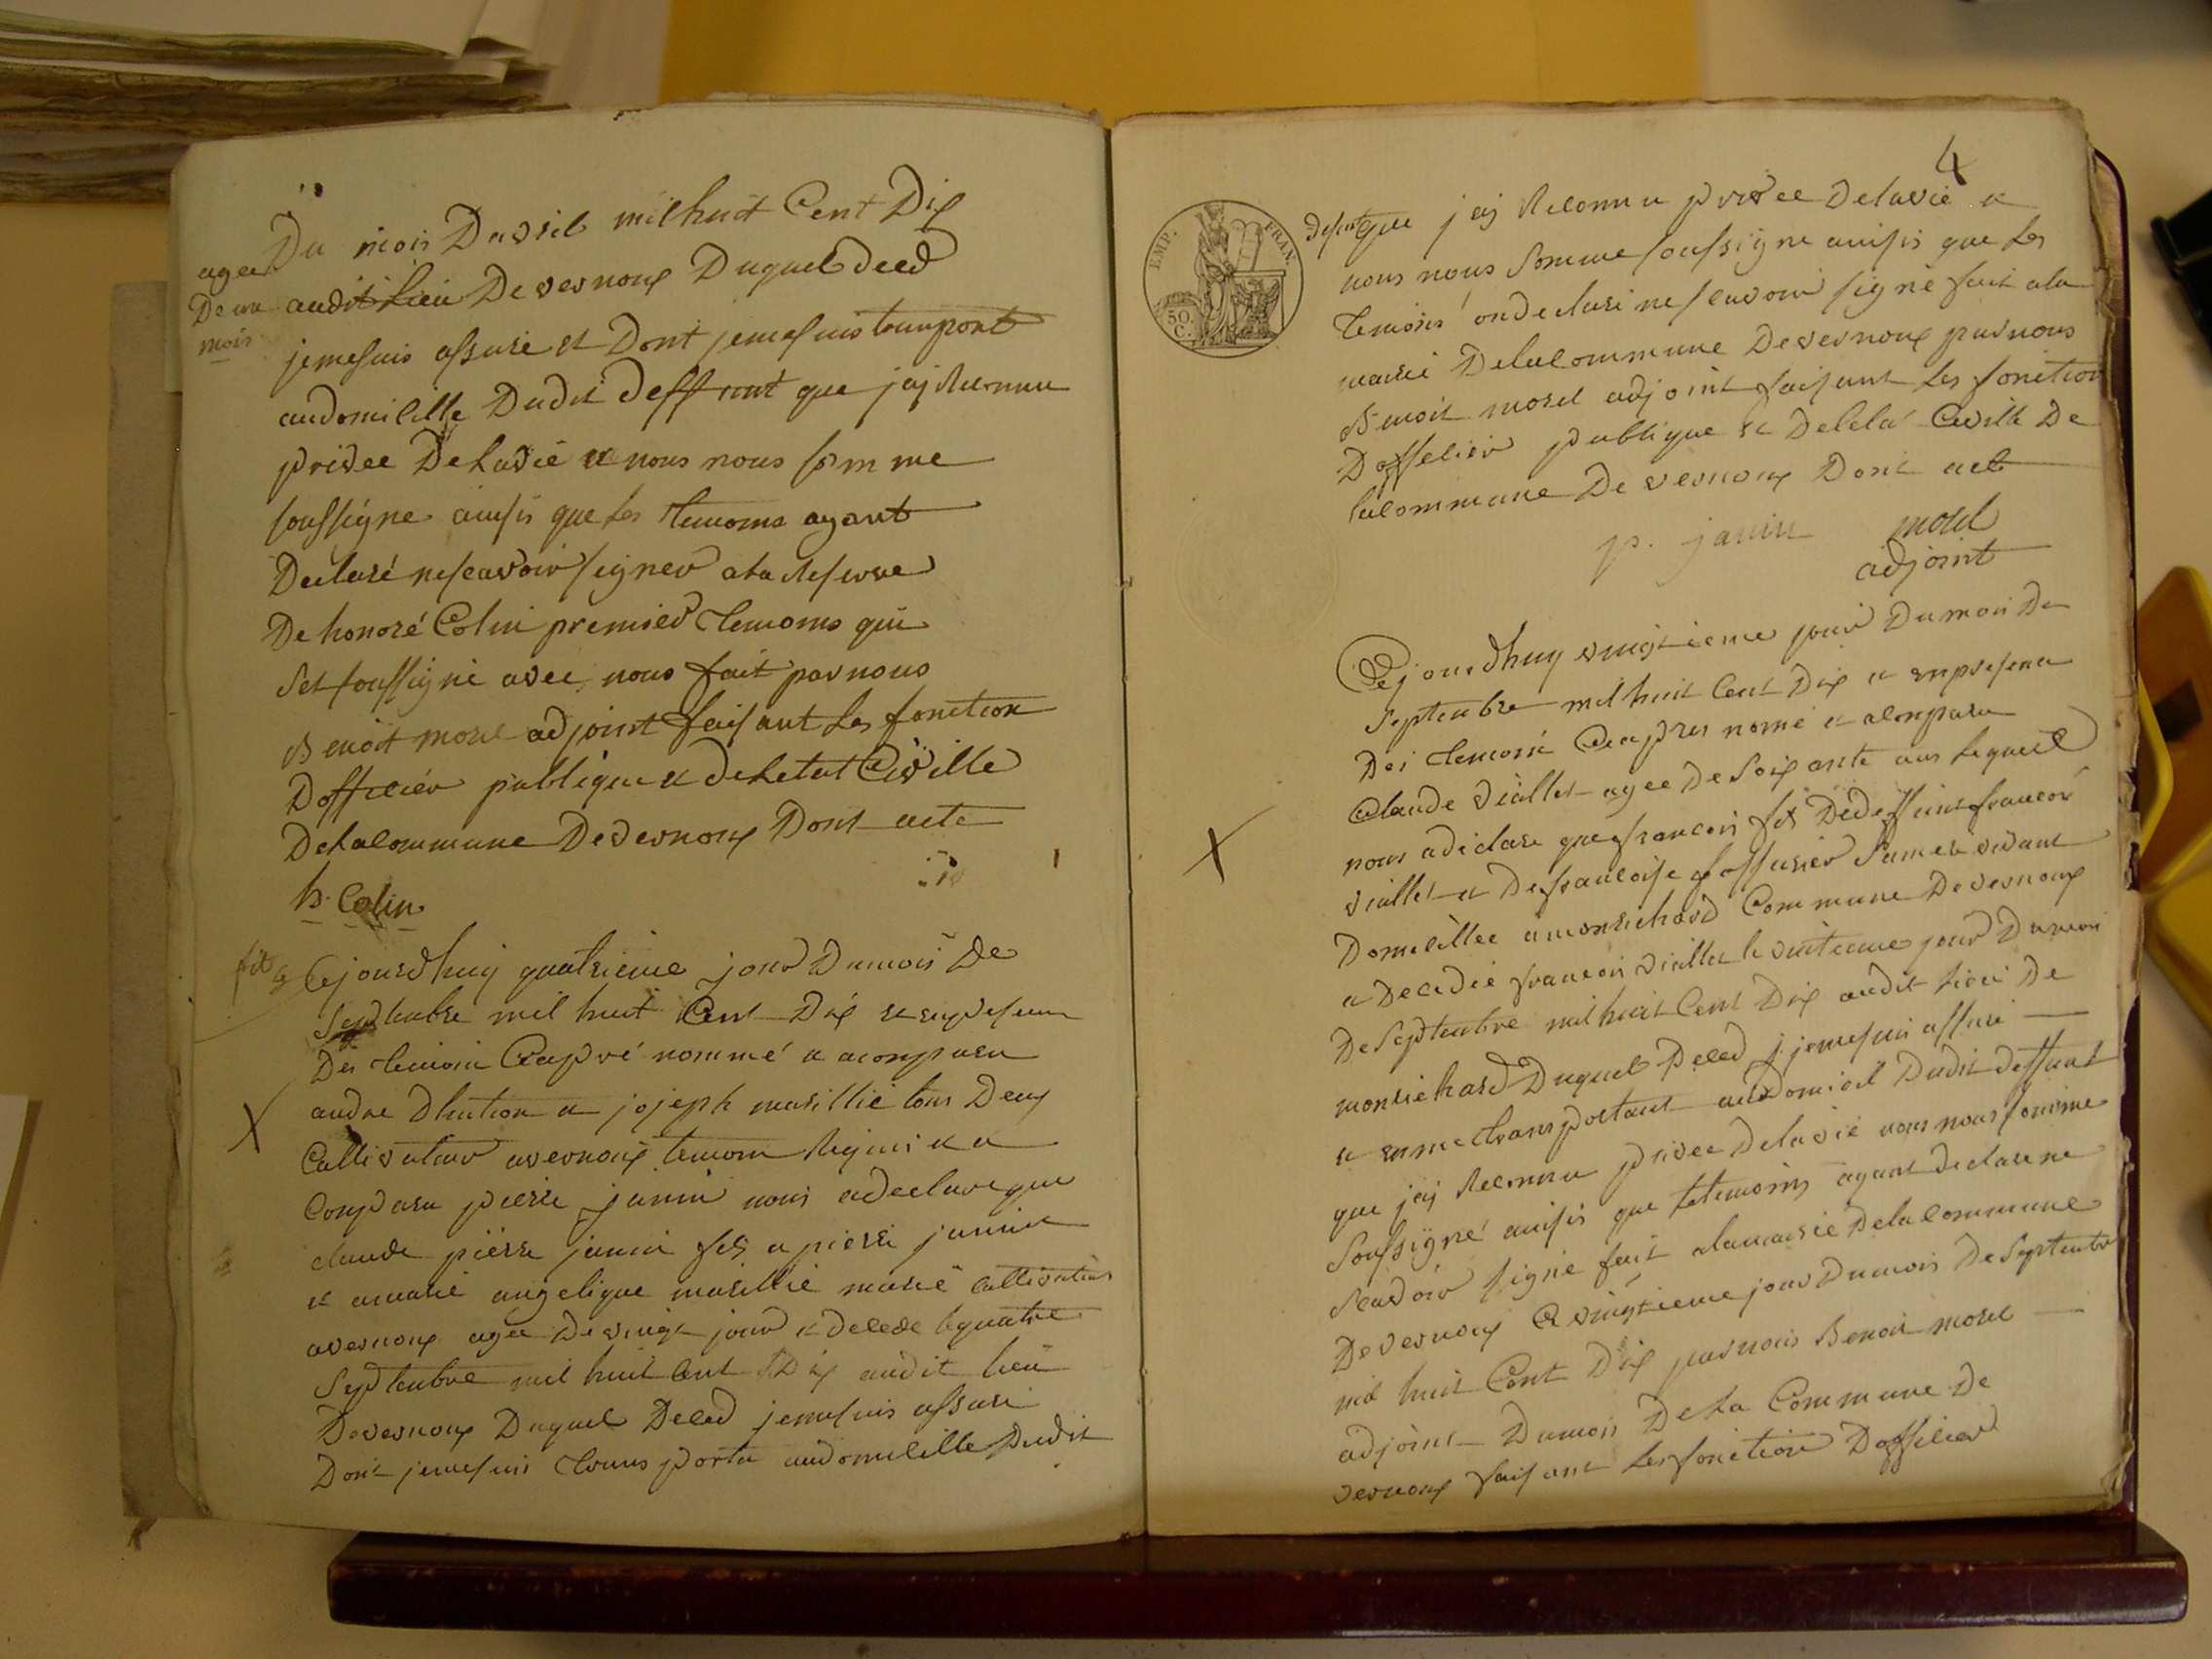 Du mois Davril mil huit Cent Dix
agee
De un
mois
audit Lieu De vernoux Duquel deced
jemesuis assure et Dont jemesuis tranport
audomicille Dudit deffunt que jaj Reconnu
privee De Lavie et nous nous somme
soussigne ainsis que Les temoins ayant
Declaré nescavoir signer ala Reserve
De honoré Colin premier temoins qui
set soussigné avec nous fait par nous
Benoit morel adjoint faisant Les fonction
Dofficier publique et de Letat Civille
De Lacommune De vernoux Dont acte
h. Colin
Cejourdhuy quatrieme jour Dumois De
Septembre mil huit Cent Dix et en presence
Des temoin Ciapré nommé a comparu
andre et joseph marillié tous Deux
Cultivateur a vernoux temoin Requis et a
Comparu pierre janin nous adeclare que
claude pierre janin fils a pierre janin
et amarie angelique marillié marié Cultivateur
avernoux agee De vingt jour et decede Lequatre
Septembre mil huit Cent Dix audit lieu
De vernoux Duquel Deced jemesuis assuré
Dont jemesuis transporta audomicille Dudit
4
EMP. FRAN.
50.
C.
defunt que jaj Reconnu privee Delavie et
nous nous Somme soussigne ainsis que Les
temoins on declaré nescavoir signé fait ala
mairie Delacommune De vernoux par nous
Benoit morel adjoint faisant Les fonction
Doffecier publique et Deleta Civille De
lacommune De vernoux Dont acte
p. janin morel
adjoint
Cejourdhuy vingtieme jour Dumois De
Septembre mil huit Cent Dix et enpresence
Des temoin Ciapres nomé et acomparu
Claude viallet agee De Soixante ans Lequel
nous adeclare que francois fils De deffunt francois
viallet et De francoise Sa mere vivant
Domicillee a monrichard Commune De vernoux
a Decedé francois viallet le vintieme jour Dumois
De Septembre mil huit Cent Dix audit Lieu De
monrichard Duquel Deced jemesuis assuré
et en me transportant audomicil Dudit deffunt
que jaj Reconnu privee Delavie nous nous somme
Soussigné ainsis que Letemoins ayant declare ne
Scavoir signé fait alamairie Delacommune
De vernoux Ce vingtieme jour Dumois De Septembre
mil huit Cent Dix par nous Benoit morel
adjoint Dumois De La Commune De
vernoux faisant Les fonction Dofficier